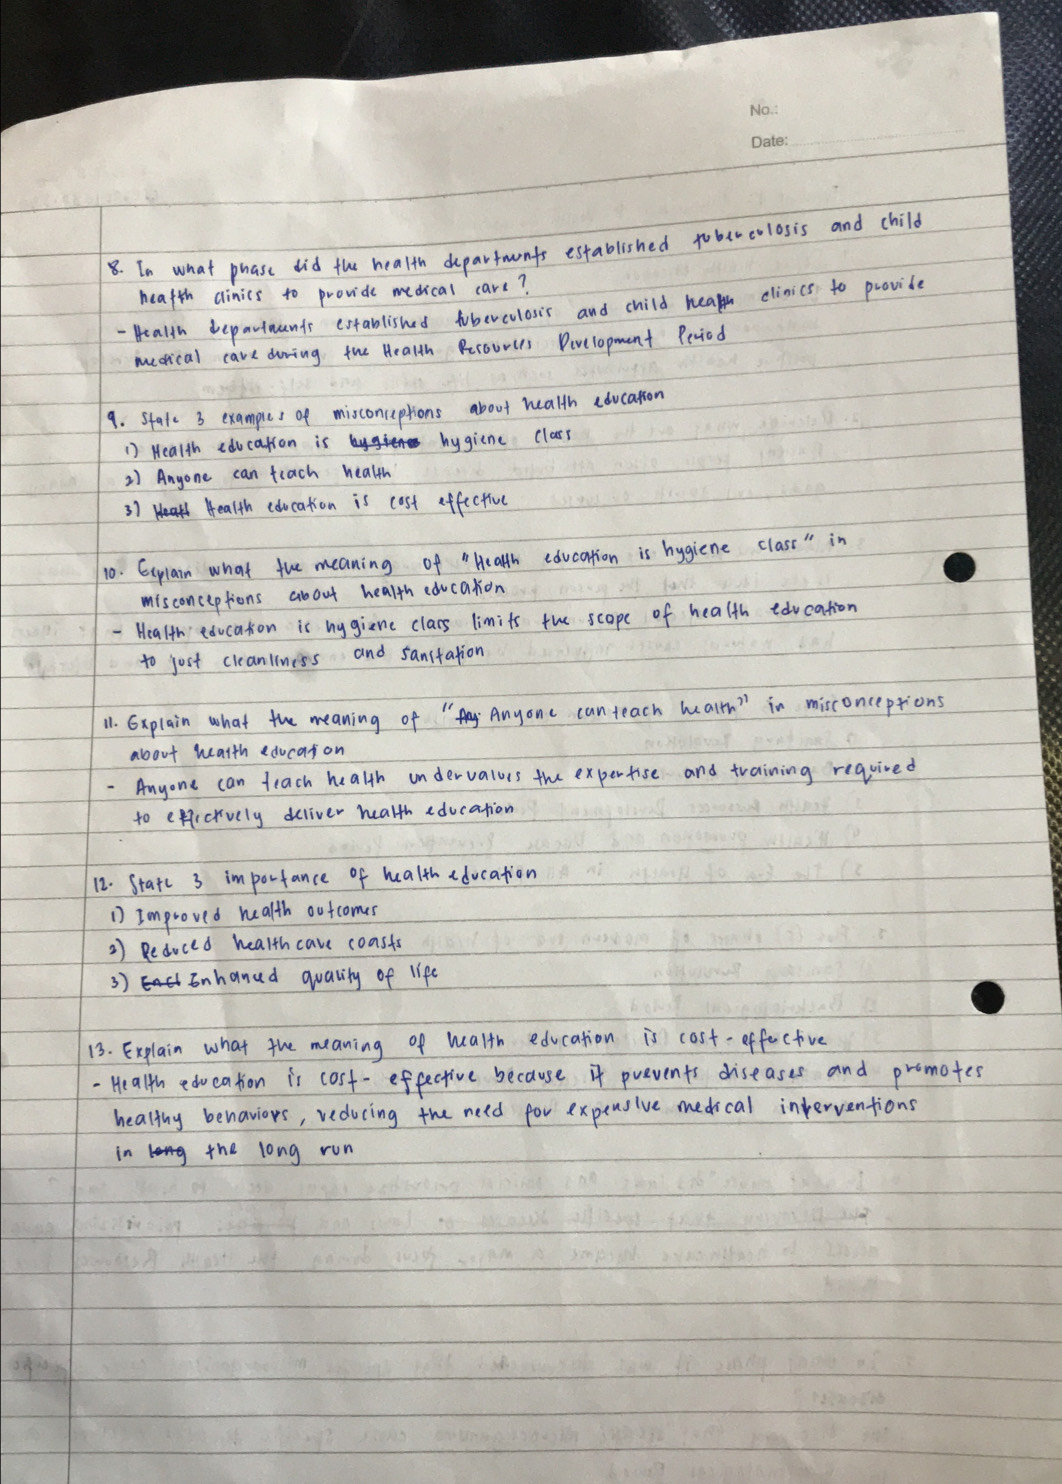 No.:
Date:
8. In what phase did the health departments established tuberculosis and child
health clinics to provide medical care?
- Health departments established tuberculosis and child health clinics to provide
medical care during the Health Resources Development Period
9. State 3 examples of misconceptions about health education
1) Health education is hygiene hygiene class
2) Anyone can teach health
3) Healt Health education is cost effective
10. Explain what the meaning of "Health education is hygiene class" in
misconceptions about health education
- Health education is hygiene class limits the scope of health education
to just cleanliness and sanitation
11. Explain what the meaning of "Any Anyone can teach health" in misconceptions
about health education
- Anyone can teach health undervalues the expertise and training required
to effectively deliver health education
12. State 3 importance of health education
1) Improved health outcomes
2) Reduced healthcare coasts
3) Enhanced quality of life
13. Explain what the meaning of health education is cost-effective
- Health education is cost-effective because it prevents diseases and promotes
healthy behaviors, reducing the need for expensive medical interventions
in long the long run